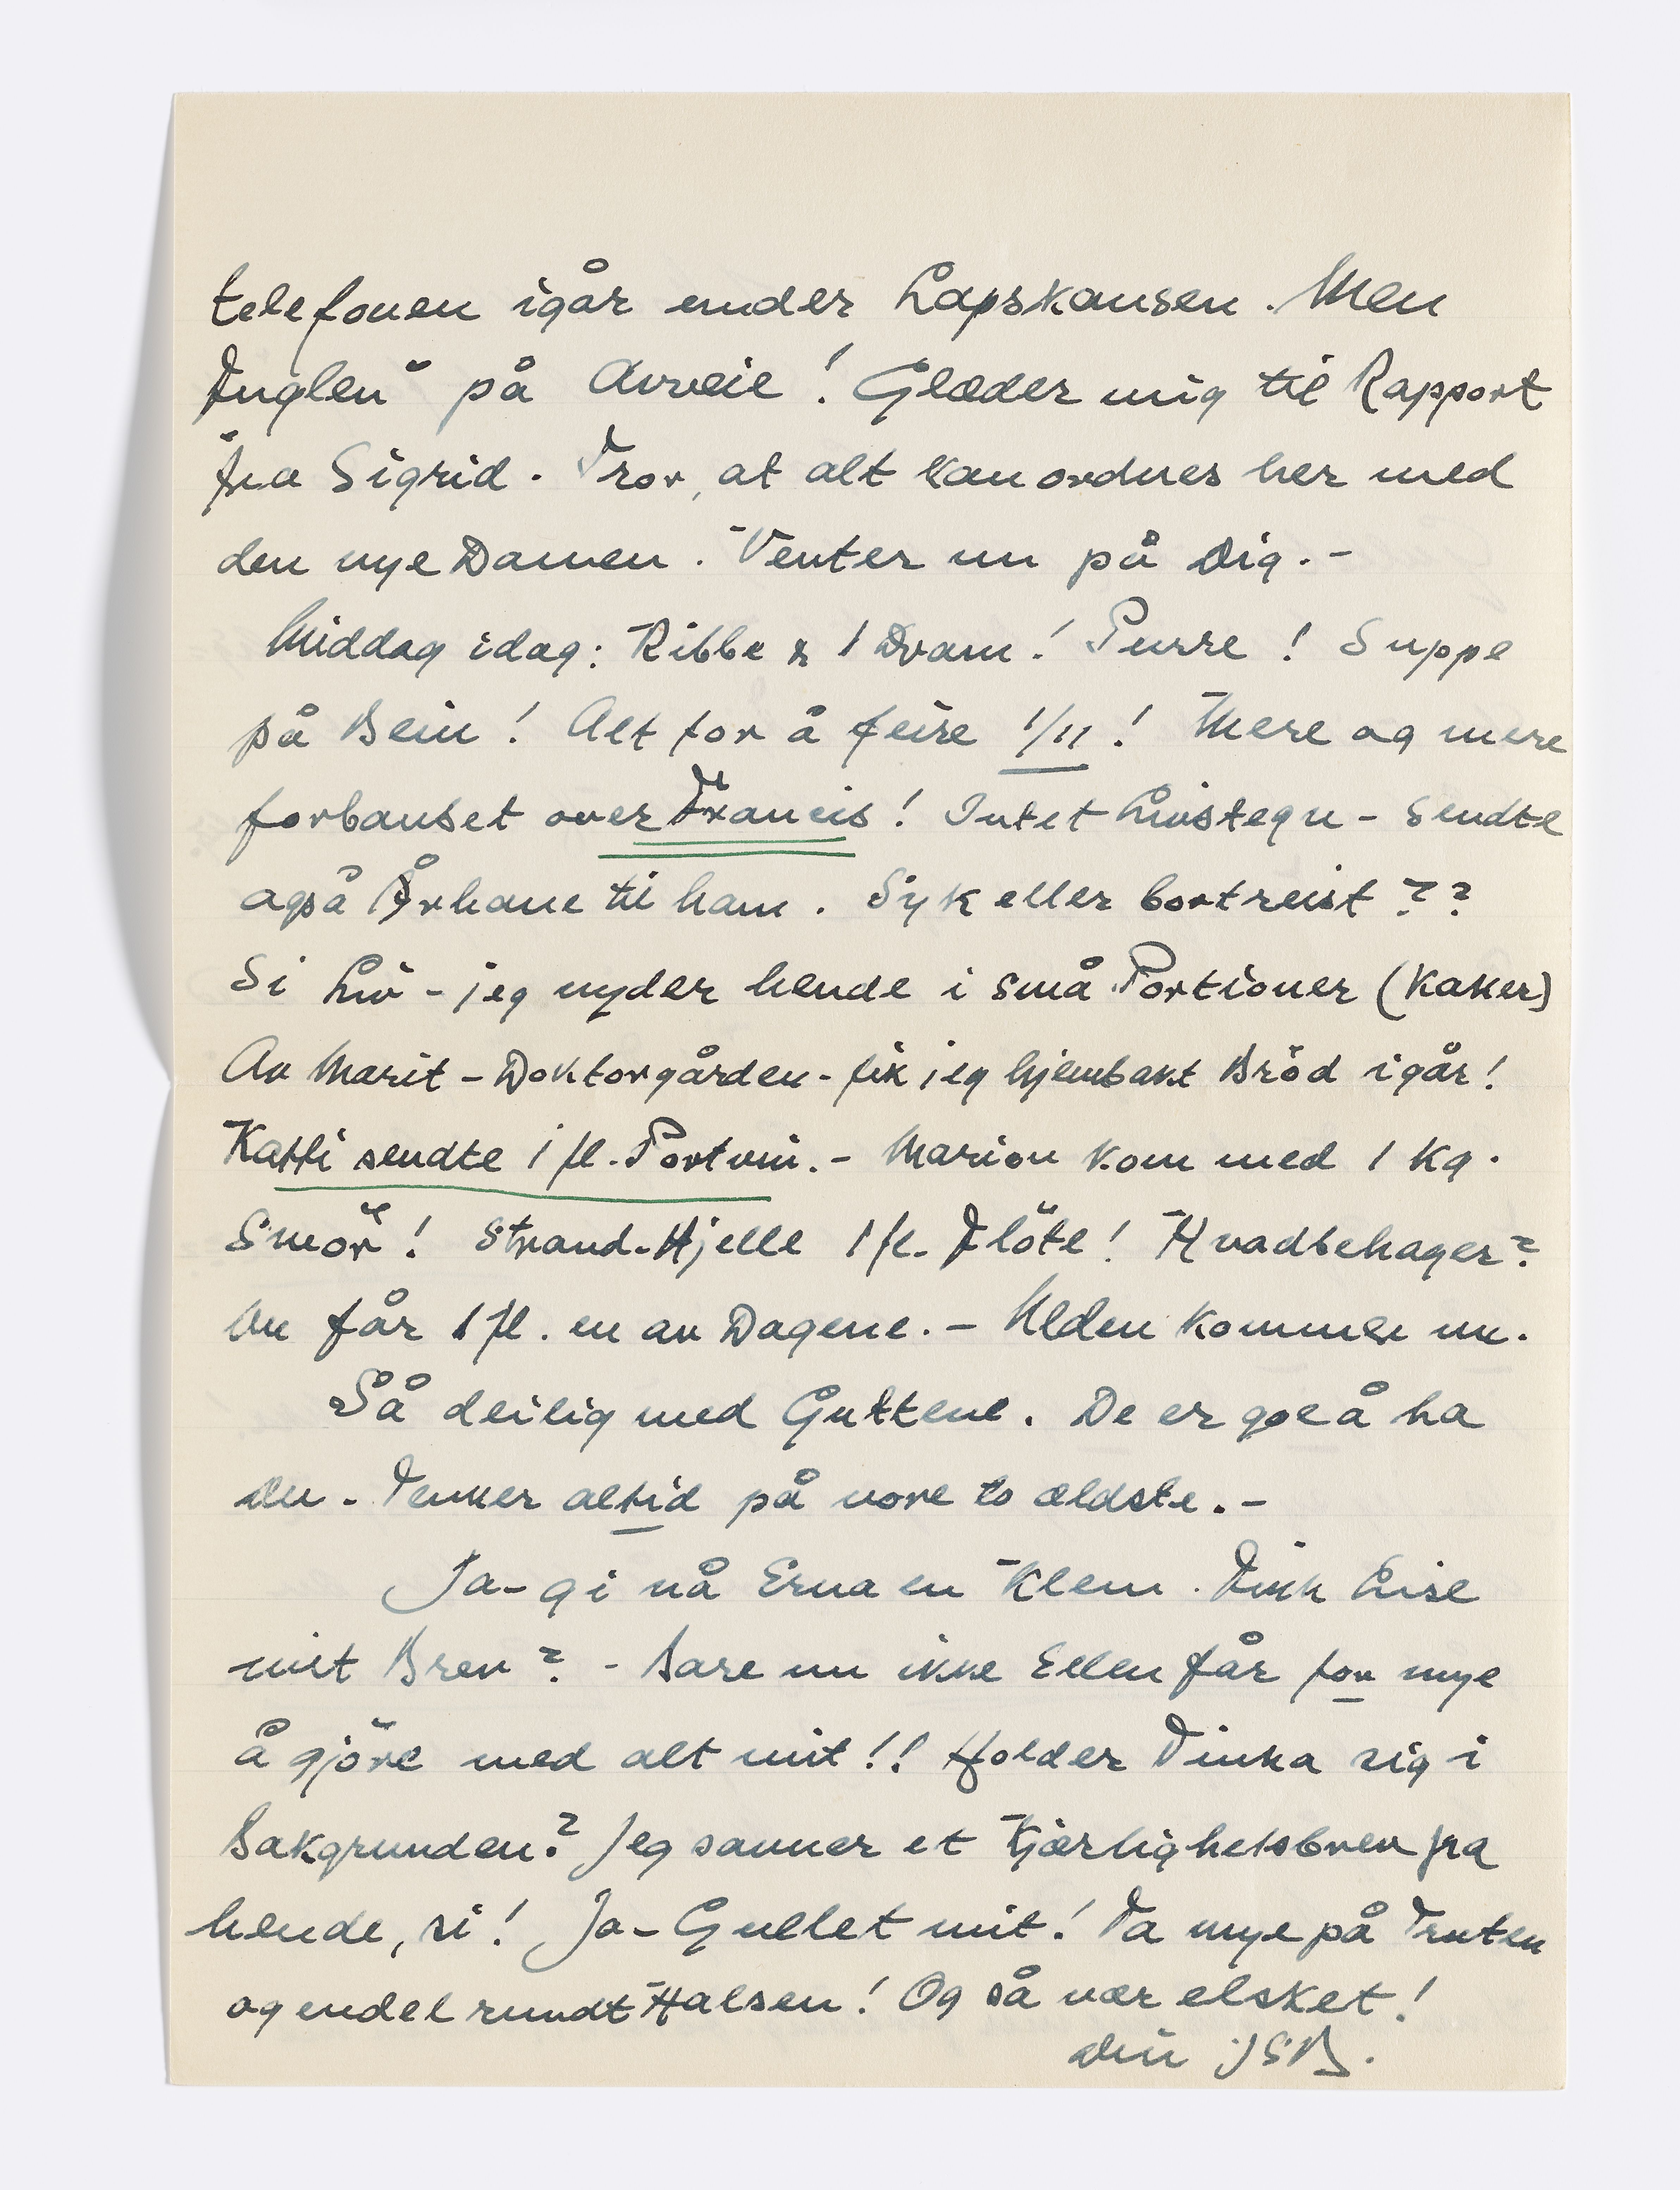 telefonen igår under Lapskausen. Men
Fuglen på Avveie! Glæder mig til Rapport
fra Sigrid. Tror, at alt kan ordnes her med
den nye Damen. Venter nu på Dig. -
Middag idag: Ribbe & 1 Dram! Purre! Suppe
på Bein! Alt for å feire 1/11! Mere og mere
forbauset over Francis! Intet Livstegn - Sendte
også Århane til ham. Syk eller bortreist??
Si Liv - jeg nyder hende i små Portioner (Kaker)
Av Marit - Doktorgården - fik jeg hjembakt Bröd igår!
Katti sendte 1 fl. Portvin. - Marion kom med 1 Kg.
Smör! Strand-Hjelle 1 fl. Flöte! Hvadbehager?
Du får 1 fl. en av Dagene. - Ulden kommer nu.
Så deilig med Guttene. De er goe å ha
du. Tenker altid på vore to ældste. -
Ja - gi nå Erna en Klem. Fikk Lise
mit Brev? - Bare nu ikke Ellen får for mye
å gjöre med alt mit!! Holder Tinka sig i
Bakgrunden? Jeg savner et Kjærlighetsbrev fra
hende, si! Ja - Gullet mit! Ta mye på Truten
og endel rundt Halsen! Og så vær elsket!
din